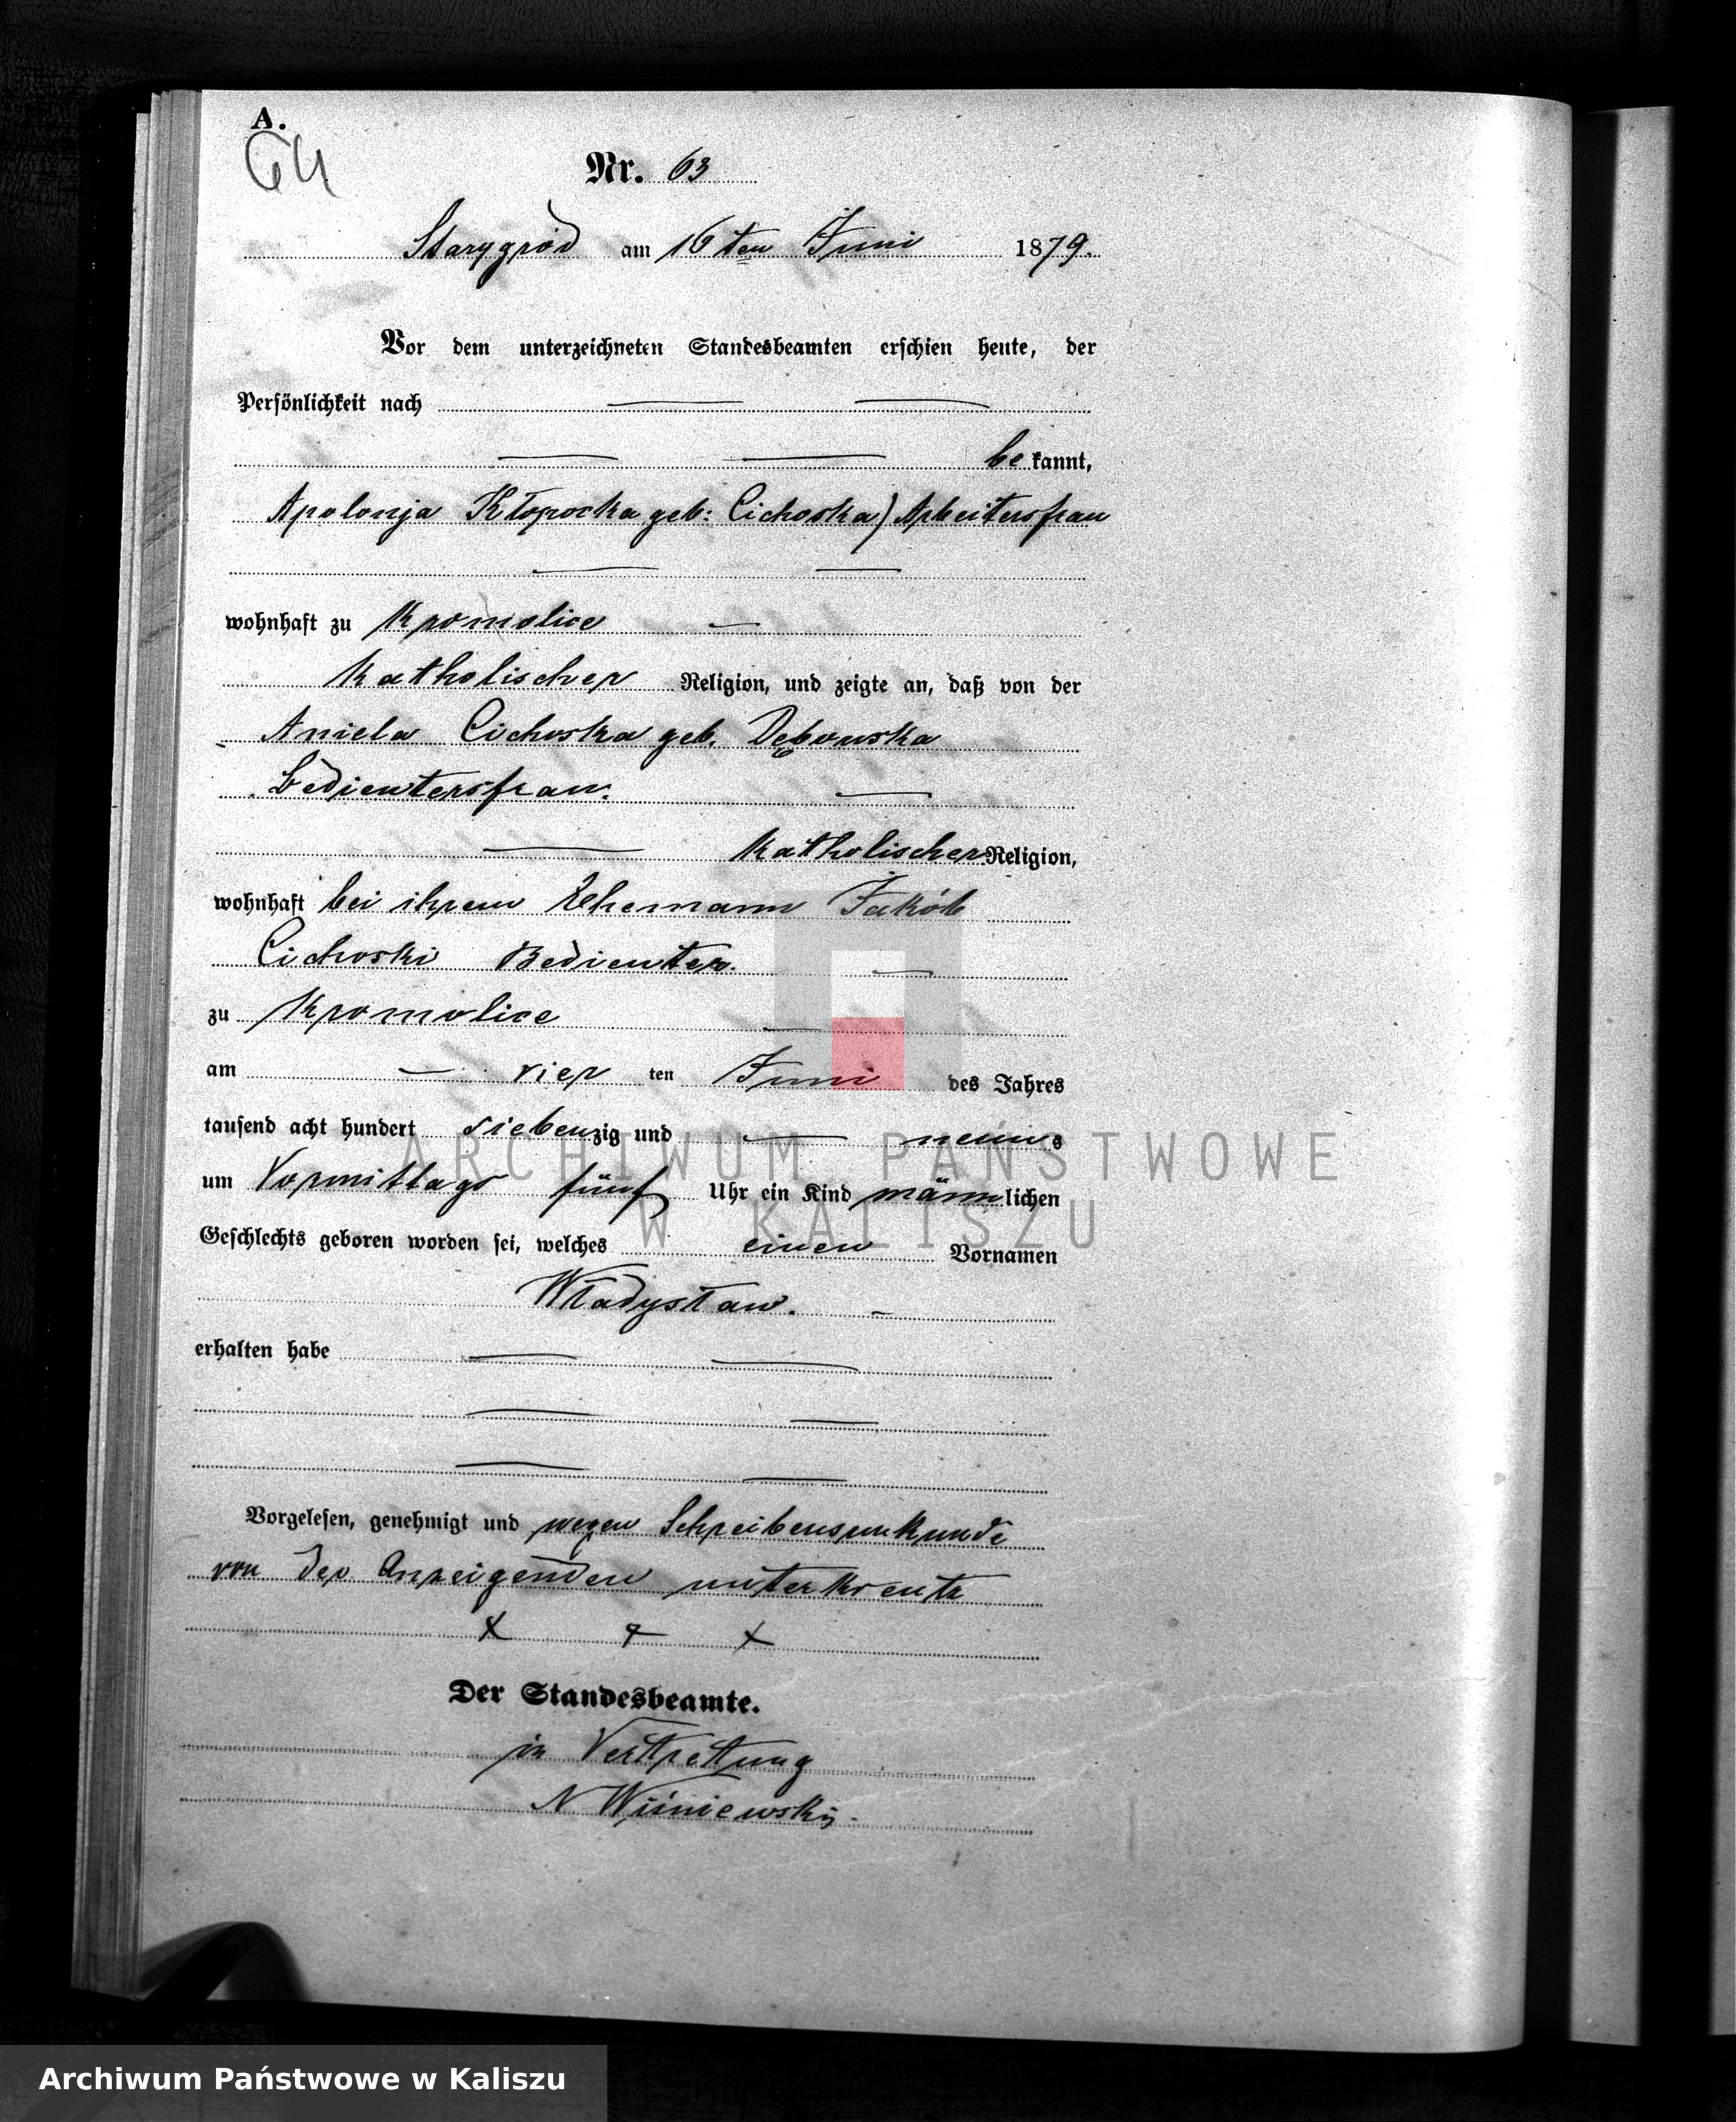 A.
64
Nr. 63
Starygród am 16ten Juni 1879.
Vor dem unterzeichneten Standesbeamten erschien heute, der
Persönlichkeit nach
be kannt,
Apolonja Kłopocka geb: Cichoska) Arbeitersfrau
wohnhaft zu Kromolice
katholischer Religion, und zeigte an, daß von der
Aniela Cichoska geb. Dębowska
Bedientersfrau.
katholischer Religion,
wohnhaft bei ihrem Ehemann Jakób
Cichoski Bedienter.
zu Kromolice
am vier ten Juni des Jahres
tausend acht hundert siebenzig und neun
um Vormittags fünf Uhr ein Kind männlichen
Geschlechts geboren worden sei, welches einen Vornamen
Władysław.
erhalten habe
Vorgelesen, genehmigt und wegen Schreibensunkunde
von der Anzeigenden unterkreutz
x x x
Der Standesbeamte.
in Vertrettung
N Wiśniewski
ARCHIWUM PAŃSTWOWE
W KALISZU
Archiwum Państwowe w Kaliszu